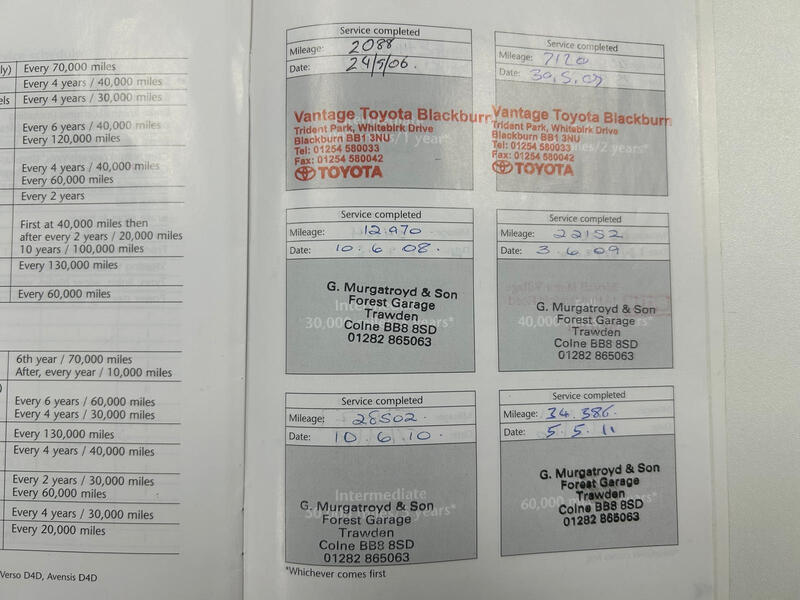 ly) Every 70,000 miles
Every 4 years / 40,000 miles
els Every 4 years / 30,000 miles
Every 6 years / 40,000 miles
Every 120,000 miles
Every 4 years / 40,000 miles
Every 60,000 miles
Every 2 years
First at 40,000 miles then
after every 2 years / 20,000 miles
10 years / 100,000 miles
Every 130,000 miles
Every 60,000 miles
6th year / 70,000 miles
After, every year / 10,000 miles
Every 6 years / 60,000 miles
Every 4 years / 30,000 miles
Every 130,000 miles
Every 4 years / 40,000 miles
Every 2 years / 30,000 miles
Every 60,000 miles
Every 4 years / 30,000 miles
Every 20,000 miles
Verso D4D, Avensis D4D
Service completed
Mileage: 2088
Date: 24/5/06.
Vantage Toyota Blackburn
Trident Park, Whitebirk Drive
Blackburn BB1 3NU
Tel: 01254 580033
Fax: 01254 580042
TOYOTA
Service completed
Mileage: 7120
Date: 30.5.07
Vantage Toyota Blackburn
Trident Park, Whitebirk Drive
Blackburn BB1 3NU
Tel: 01254 580033
Fax: 01254 580042
TOYOTA
Service completed
Mileage: 12.970
Date: 10.6.08.
G. Murgatroyd & Son
Forest Garage
Trawden
Colne BB8 8SD
01282 865063
Service completed
Mileage: 22152
Date: 3.6.09
G. Murgatroyd & Son
Forest Garage
Trawden
Colne BB8 8SD
01282 865063
Service completed
Mileage: 28502.
Date: 10.6.10.
Intermediate
G. Murgatroyd & Son
Forest Garage
Trawden
Colne BB8 8SD
01282 865063
Service completed
Mileage: 34.386.
Date: 5.5.11
G. Murgatroyd & Son
Forest Garage
Trawden
Colne BB8 8SD
01282 865063
*Whichever comes first